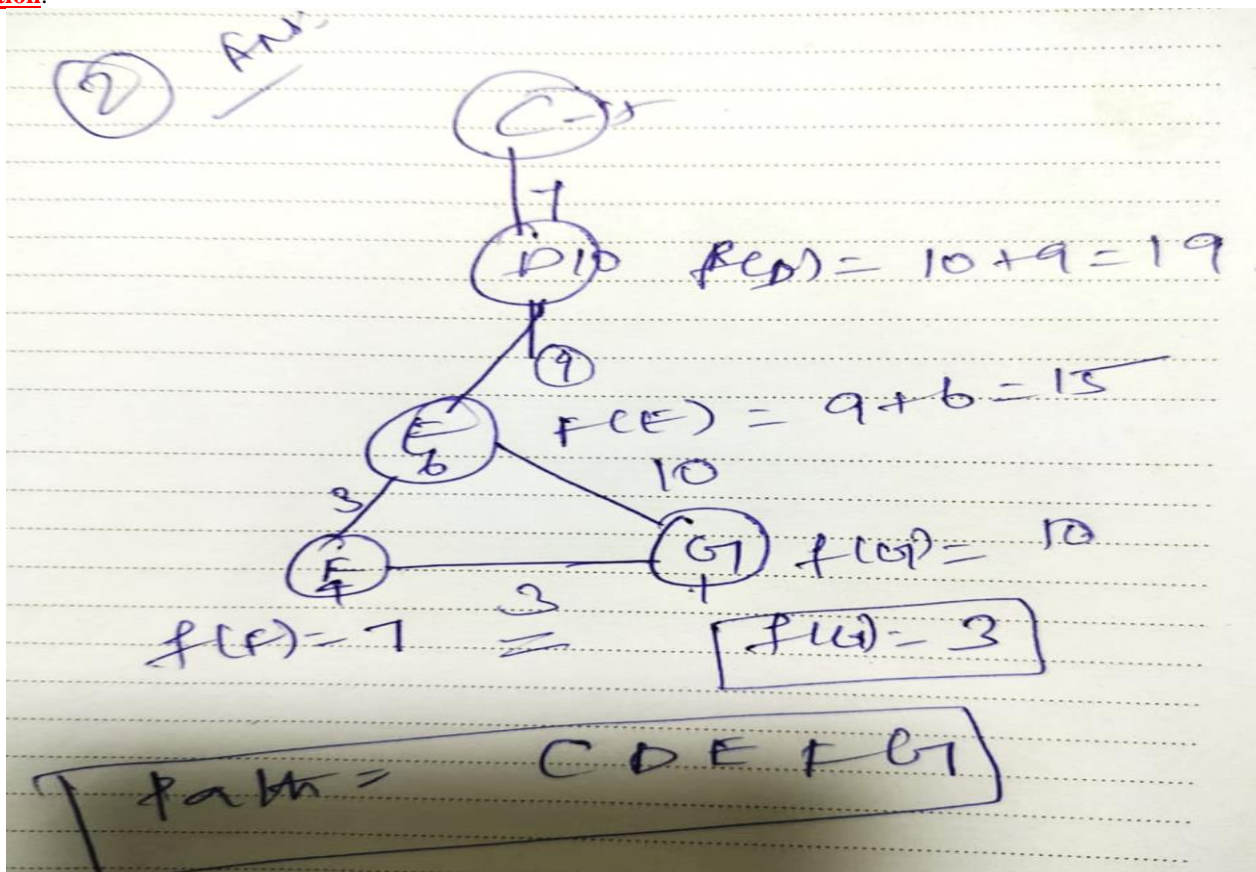 tion.
2 Ans.
C-15
7
D10 f(D) = 10+9=19
9
E 6 F(E) = 9+6=15
3 10
F 4 G 1 f(G)= 10
f(F)=7 3 f(G)=3
Path = C D E F G